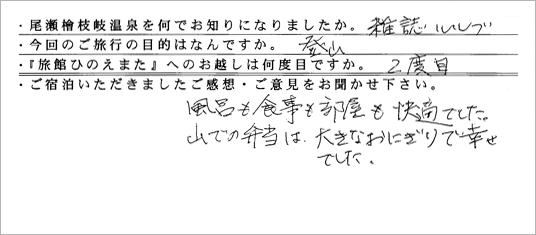 ・尾瀬檜枝岐温泉を何でお知りになりましたか。 雑誌 るるぶ
・今回のご旅行の目的はなんですか。 登山
・『旅館ひのえまた』へのお越しは何度目ですか。 2度目
・ご宿泊いただきましたご感想・ご意見をお聞かせ下さい。
風呂も食事も部屋も快適でした。
山での弁当は、大きなおにぎりで幸せ
でした。